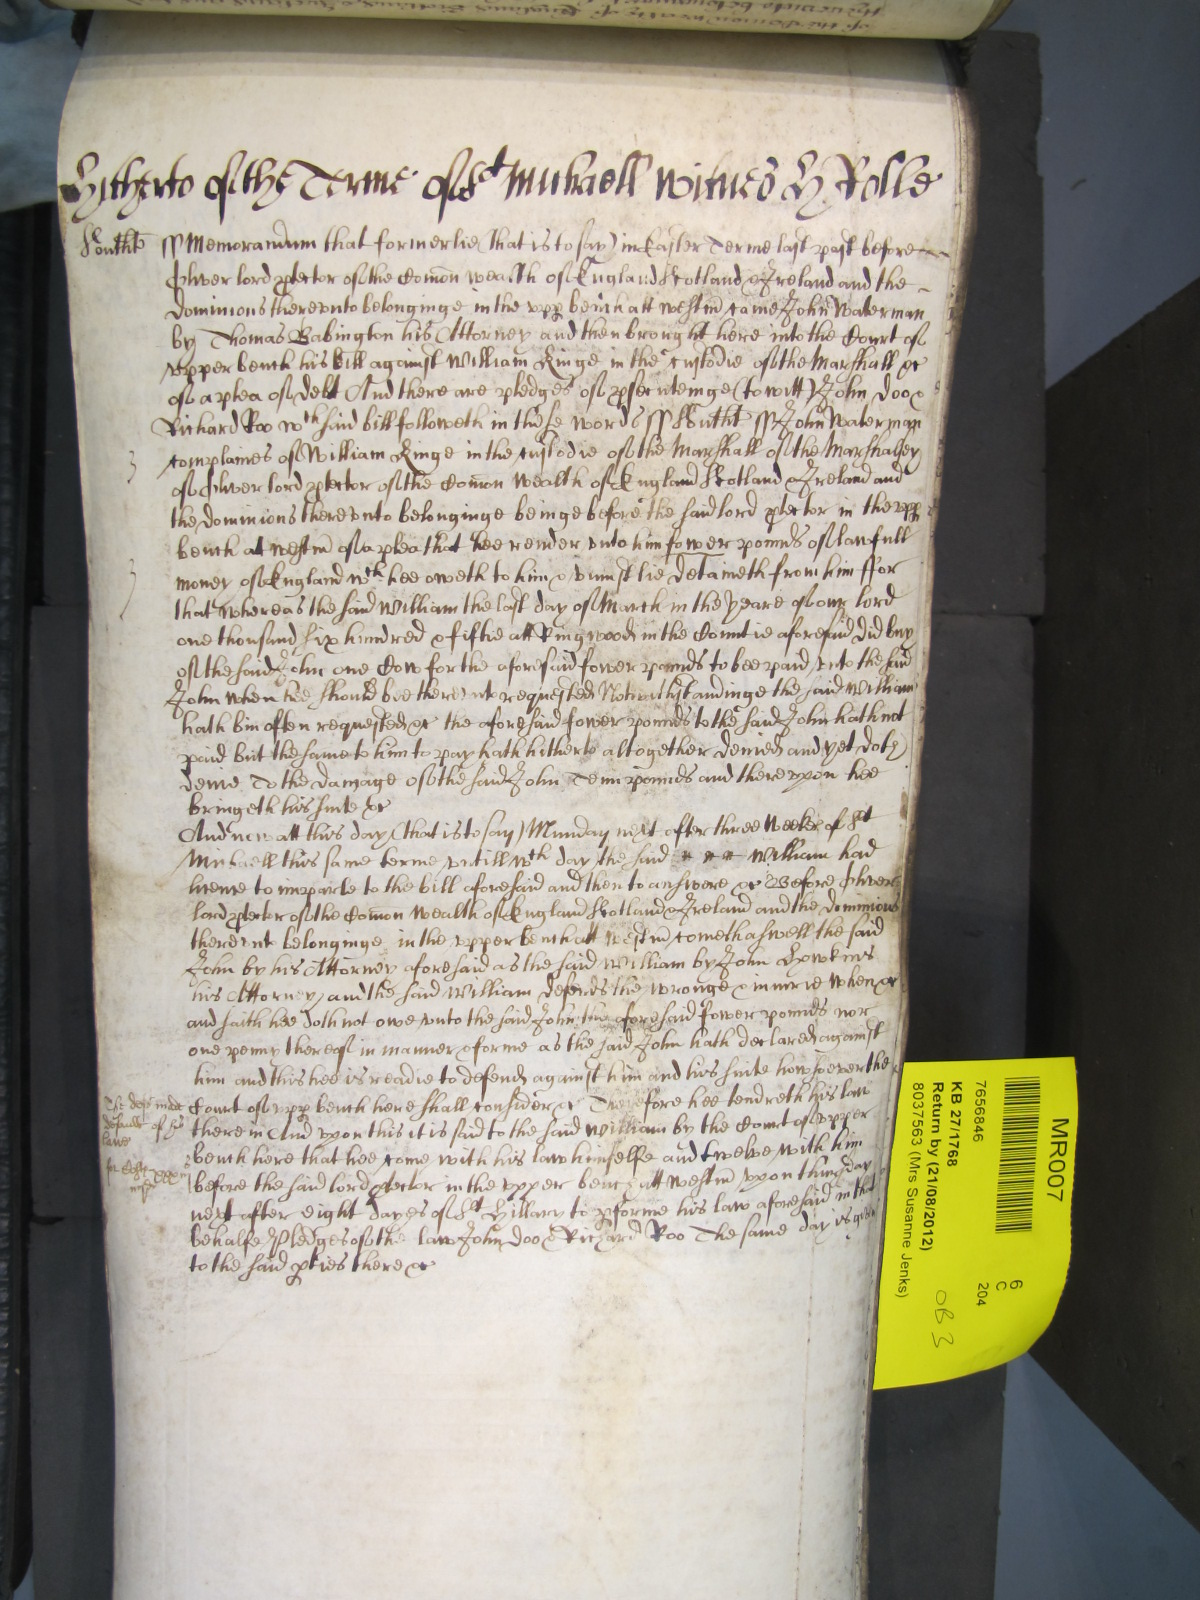 Hitherto of the Terme of St Michaell witnes H Rolle
Southt ss Memorandum that formerlie (that is to say) in Easter Terme last past before
Oliver lord ptector of the Comon wealth of England Scotland & Ireland and the
dominions therevnto belonginge in the vpp bench att westm came John Waterman
by Thomas Babington his Attorney and then brought here into the Court of
vpper bench his bill against William Kinge in the custodie of the Marshall &c
of a plea of debt And there are pledges of psecuteinge (to witt) John Doo &
Richard Roo wch said bill followeth in these words ss Southt ss John Waterman
complaines of William Kinge in the custodie of the Marshall of the Marshalsey
of Oliver lord ptector of the Comon wealth of England Scotland & Ireland and
the dominions therevnto belonginge beinge before the said lord ptector in the vpp
bench at westm of a plea that hee render vnto him fower pounds of lawfull
money of England wch hee oweth to him & vniustlie detaineth from him ffor
that whereas the said William the last day of March in the yeare of our lord
one thousand six hundred & fiftie att Ringwood in the Countie aforesaid did buy
of the said John one Cow for the aforesaid fower pounds to bee paid vnto the said
John when hee should bee therevnto requested Notwithstandinge the said William
hath bin often requested &c the aforesaid fower pounds to the said John hath not
paid but the same to him to pay hath hitherto altogether denied and yet doth
denie To the damage of the said John Tenn pounds and therevpon hee
bringeth his suite &c
And now att this day (that is to say) Munday next after three Weekes of St
Michaell this same terme vntill wch day the said William had
licence to imparle to the bill aforesaid and then to answere &c Before Oliver
lord ptector of the Comon wealth of England Scotland & Ireland and the dominions
therevnto belonginge in the vpper bench att westm cometh aswell the said
John by his Attorney aforesaid as the said William by John Hawkins
his Attorney and the said William defends the wronge & iniurie when &c
and saith hee doth not owe vnto the said John the aforesaid fower pounds nor
one penny thereof in manner & forme as the said John hath declared against
him and this hee is readie to defend against him and his suite howsoever the
The deft made
default of his
lawe
Court of vpp bench here shall consider &c Therefore hee tendreth his law
therein And vpon this it is said to the said William by the Court of vpper
bench here that hee come with his law himselfe and twelve with him
before the said lord ptector in the vpper bench att westm vpon thursday
next after eight dayes of St Hillary to pforme his law aforesaid in that
behalfe Pledges of the law John Doo & Richard Roo The same day is given
to the said pties there &c
MR007
7656846
KB 27/1768
Return by (21/08/2012)
8037563 (Mrs Susanne Jenks)
6
C
204
OB 3